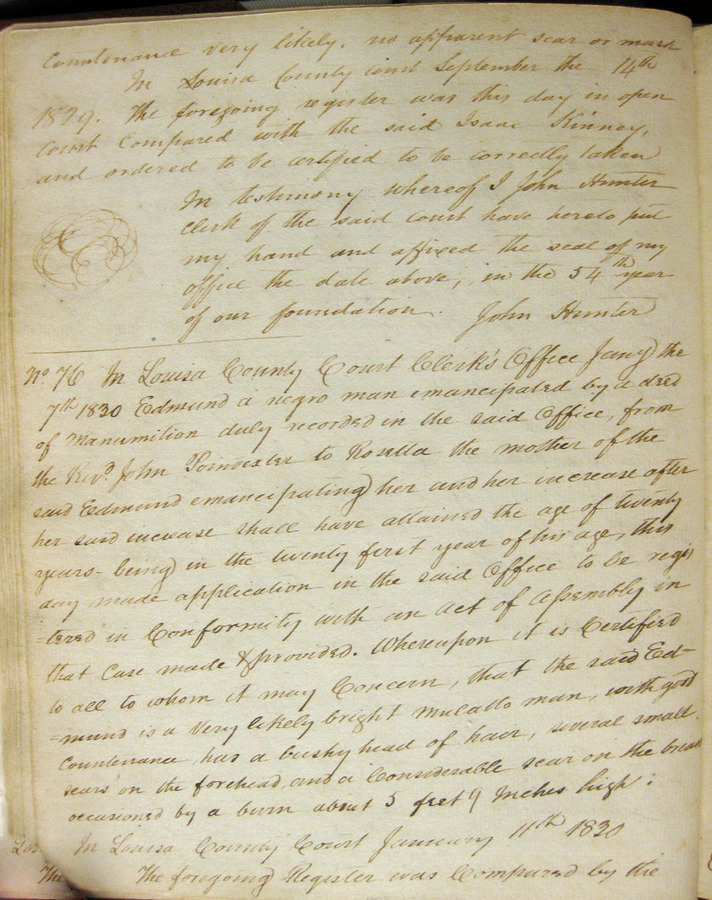 Countenance very likely. no apparent scar or mark
In Louisa County court September the 14th
1829. The foregoing register was this day in open
Court Compared with the said Isaac Kinney,
and ordered to be certified to be correctly taken
In testimony whereof I John Hunter
Clerk of the said Court have hereto put
my hand and affixed the seal of my
office the date above, in the 54th year
of our foundation. John Hunter
No. 76 In Louisa County Court Clerk's Office Jany the
7th 1830 Edmund a negro man emancipated by a deed
of Manumition duly recorded in the said Office, from
the Revd. John Poindexter to Rosetta the mother of the
said Edmund emancipating her and her increase after
her said increase shall have attained the age of twenty
years - being in the twenty first year of his age, this
day made application in the said Office to be regis
=tered in Conformity with an act of Assembly in
that Case made & provided. Whereupon it is Certified
to all to whom it may Concern, that the said Ed-
=mund is a Very likely bright Mulatto man, with good
Countenance, has a bushy head of hair, several small
scars on the forehead, and a Considerable scar on the breast
occasioned by a burn about 5 feet 9 Inches high:
In Louisa County Court January 11th 1830
The
The foregoing Register was Compared by the